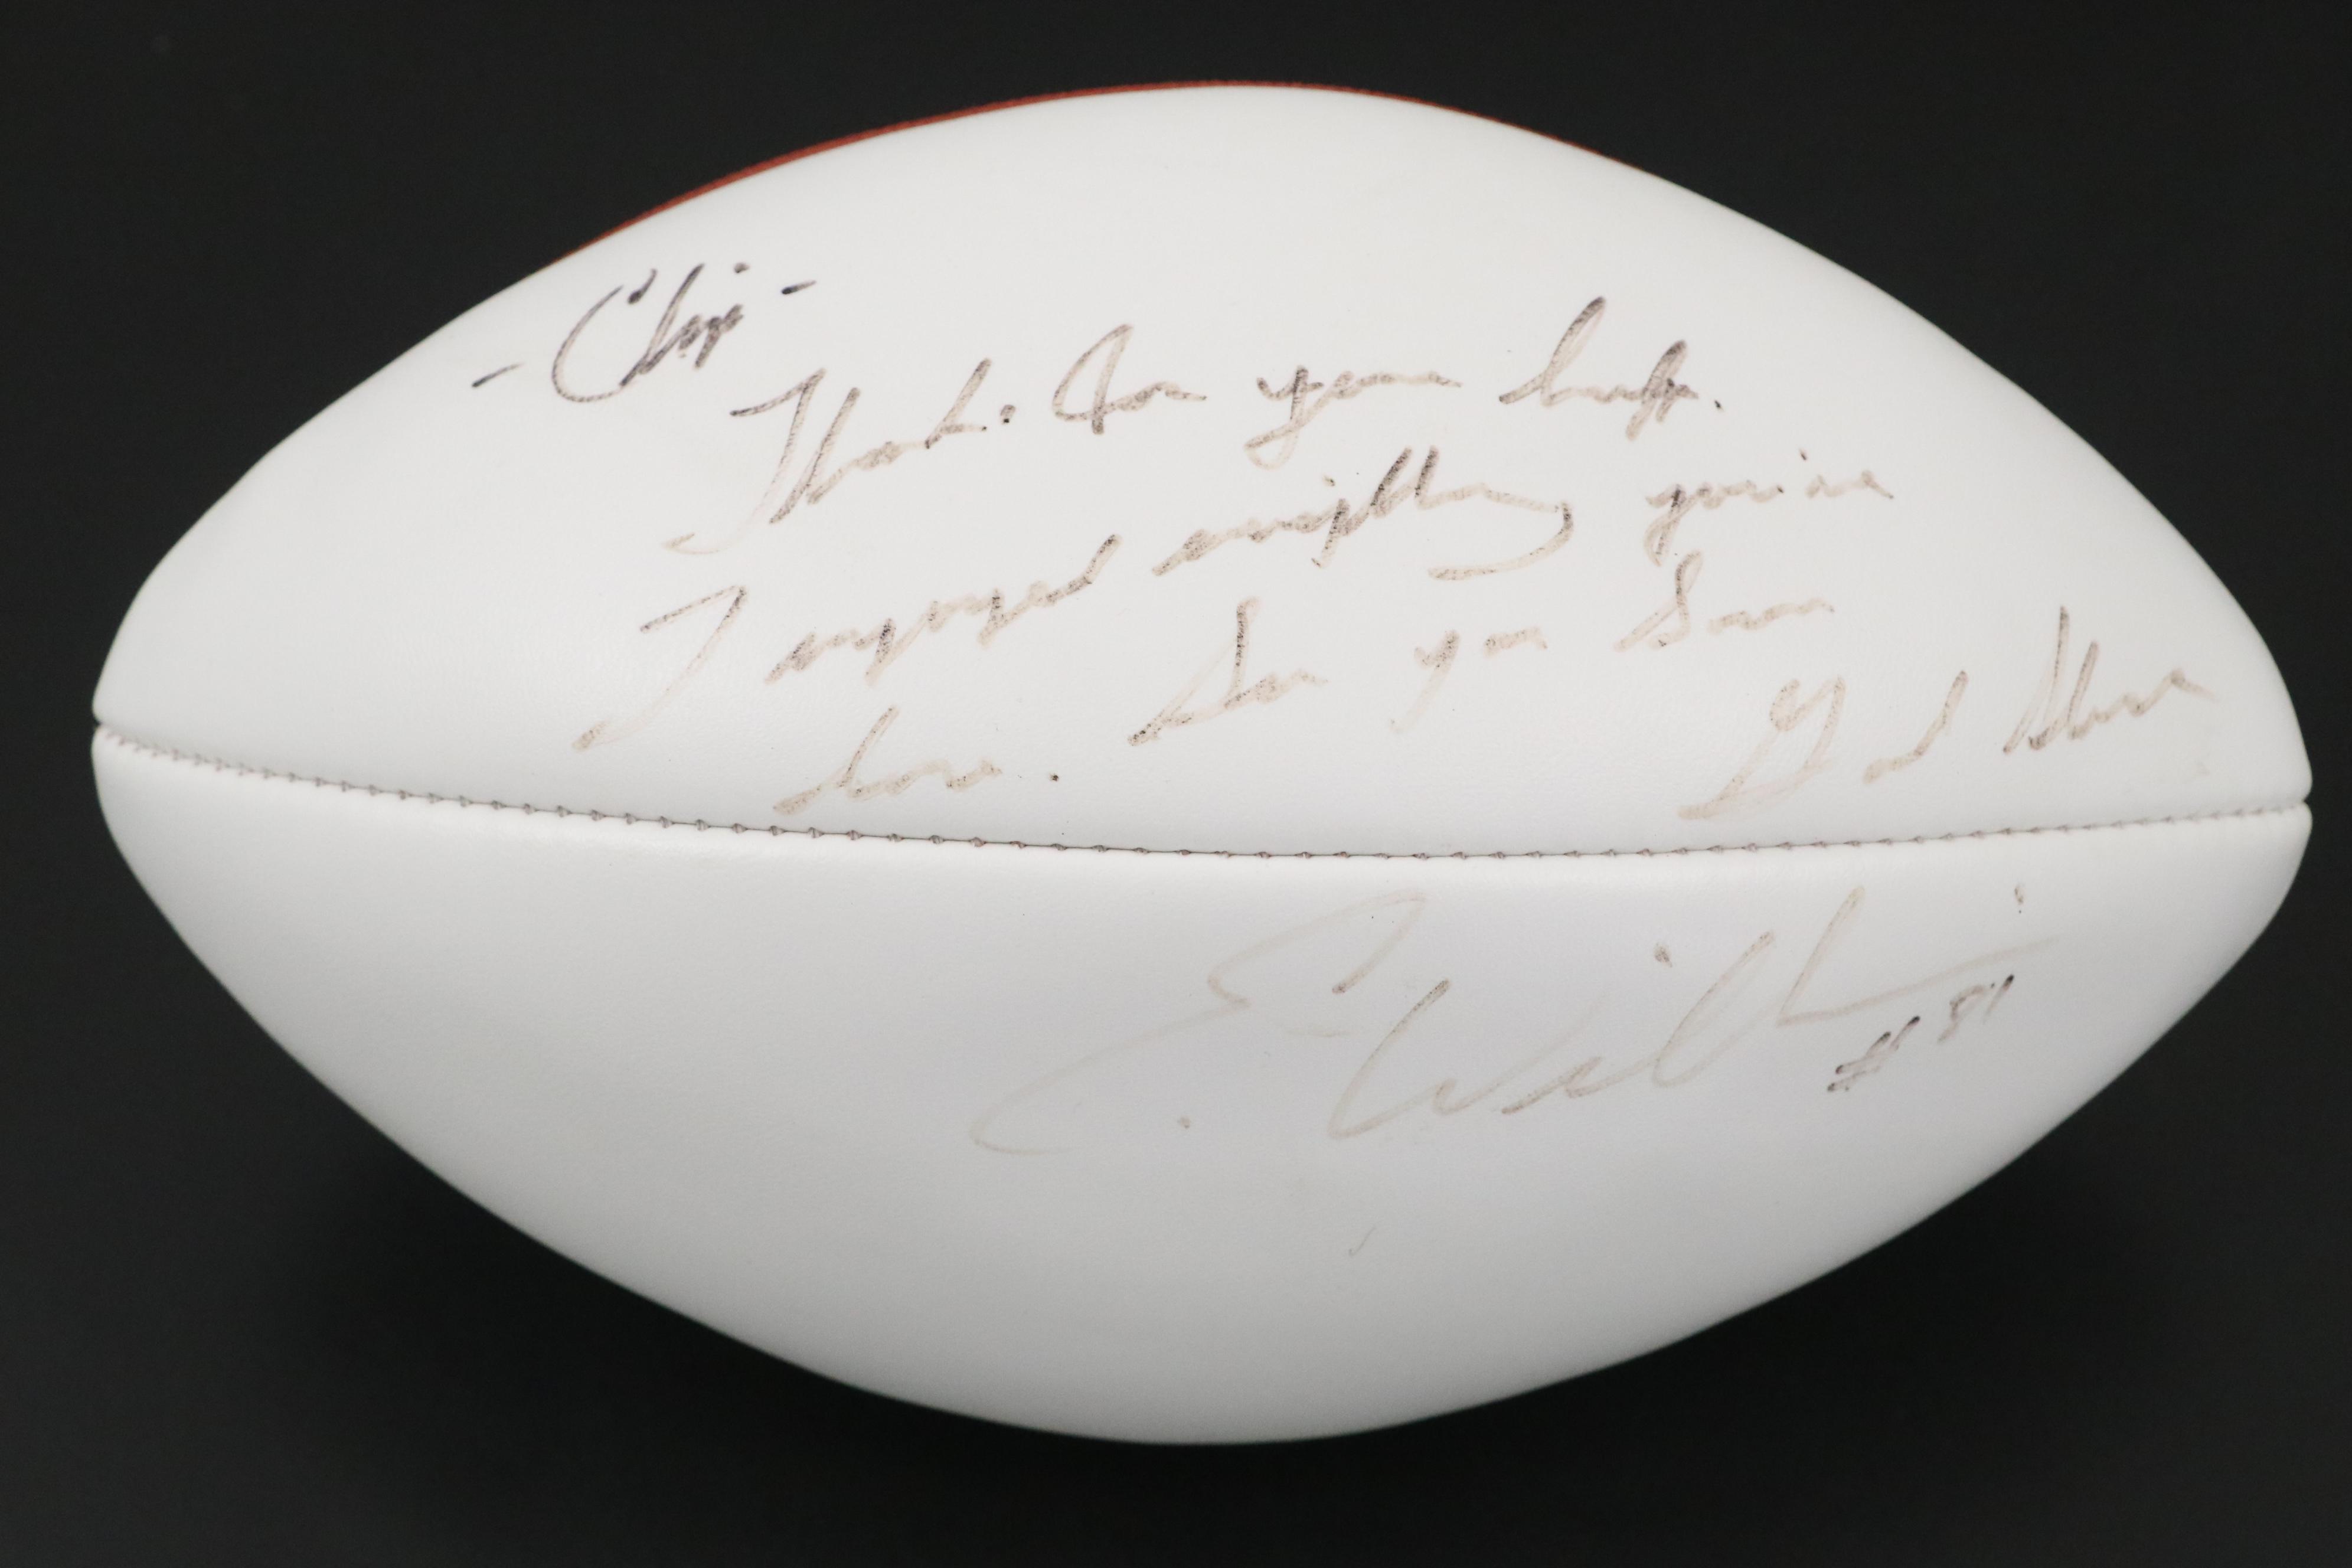 - Chip -
Thanks for your help.
I enjoyed everything you've
done. See you soon
God Bless
E. Will #81